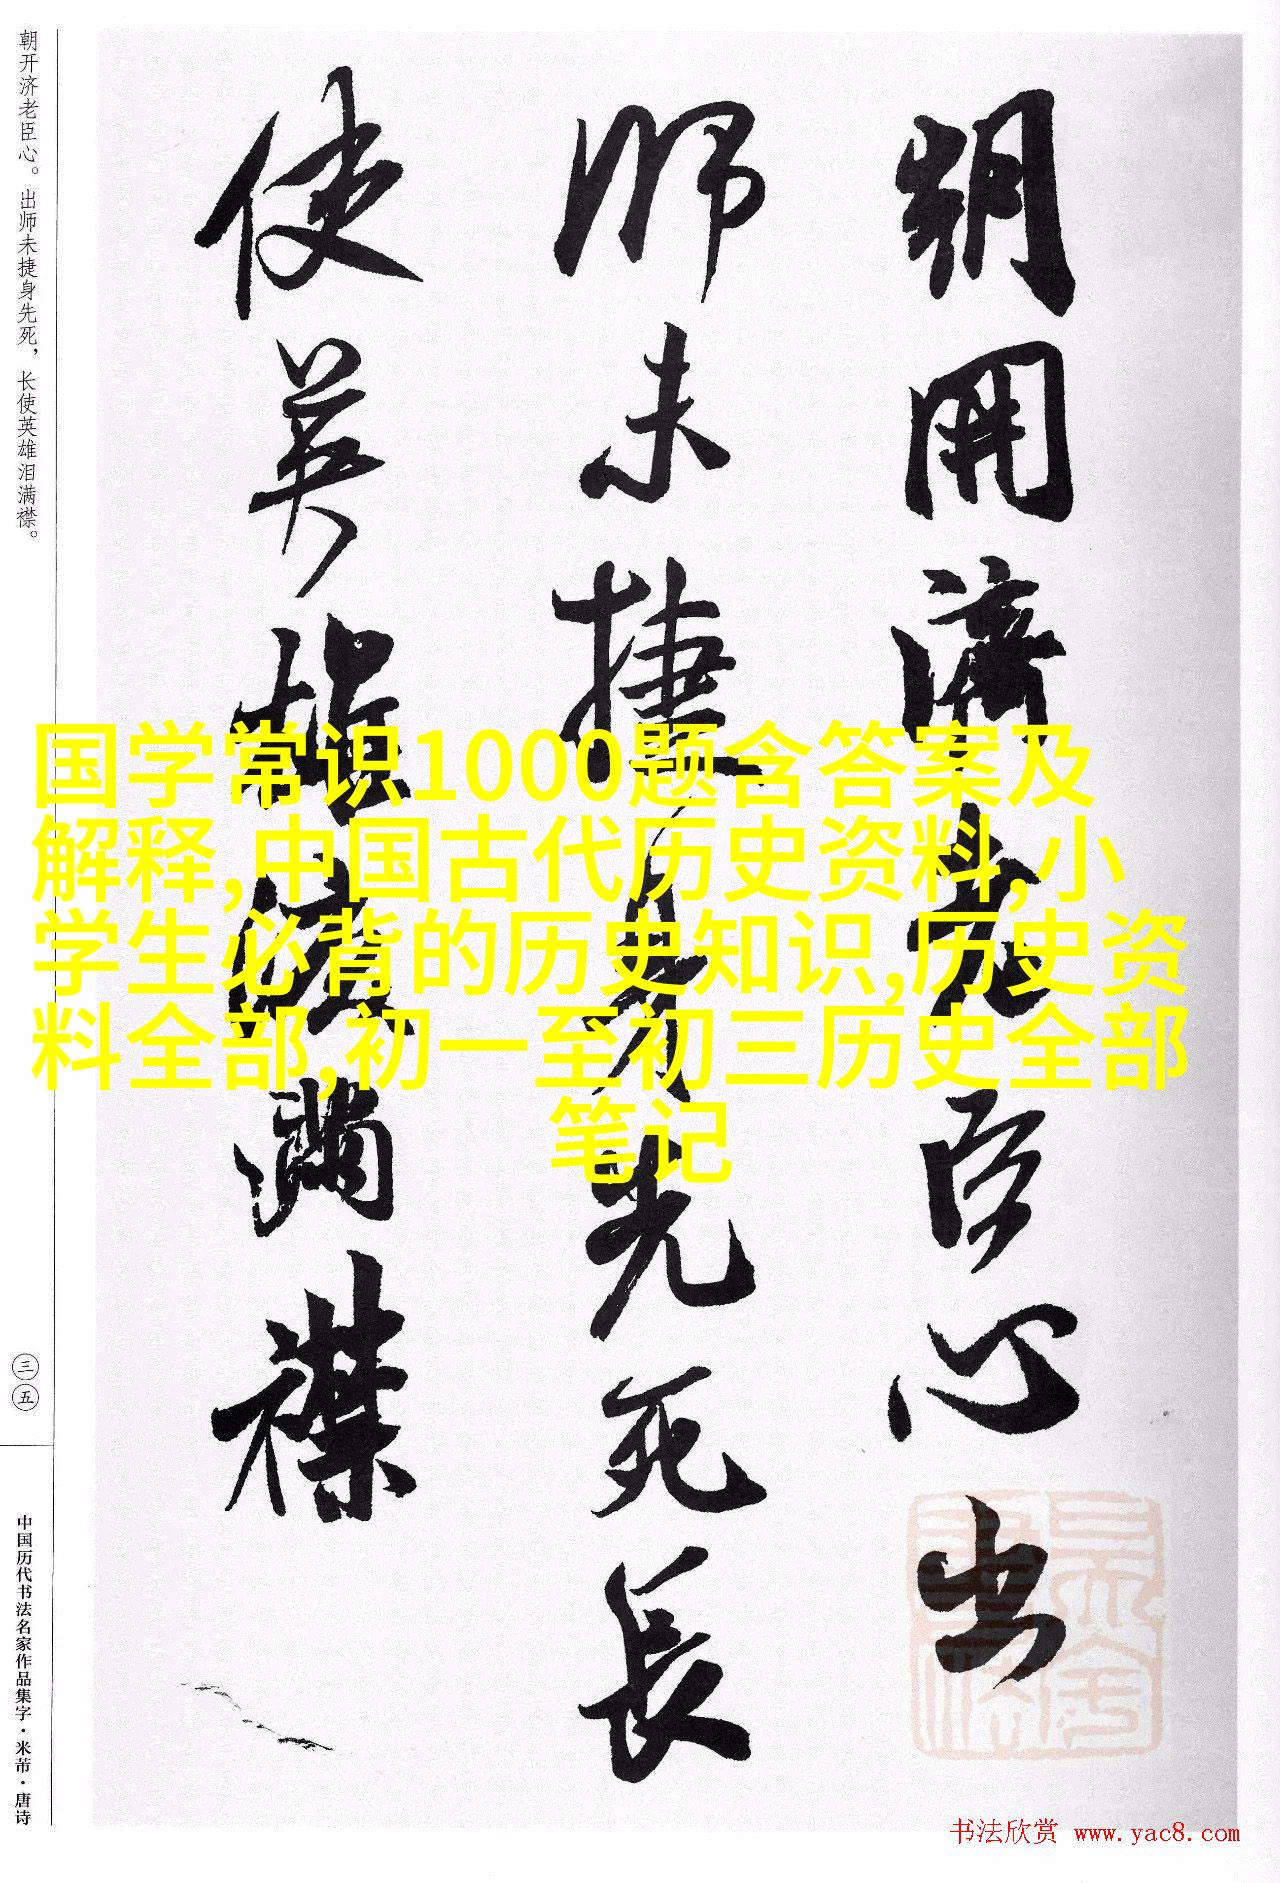 朝開濟老臣心出
師未捷身先死長
使英雄淚滿襟
朝开济老臣心。出师未捷身先死，长使英雄泪满襟。
三五
中国历代书法名家作品集字·米芾·唐诗
国学常识1000题含答案及
解释,中国古代历史资料,小
学生必背的历史知识,历史资
料全部,初一至初三历史全部
笔记
书法欣赏 www.yac8.com